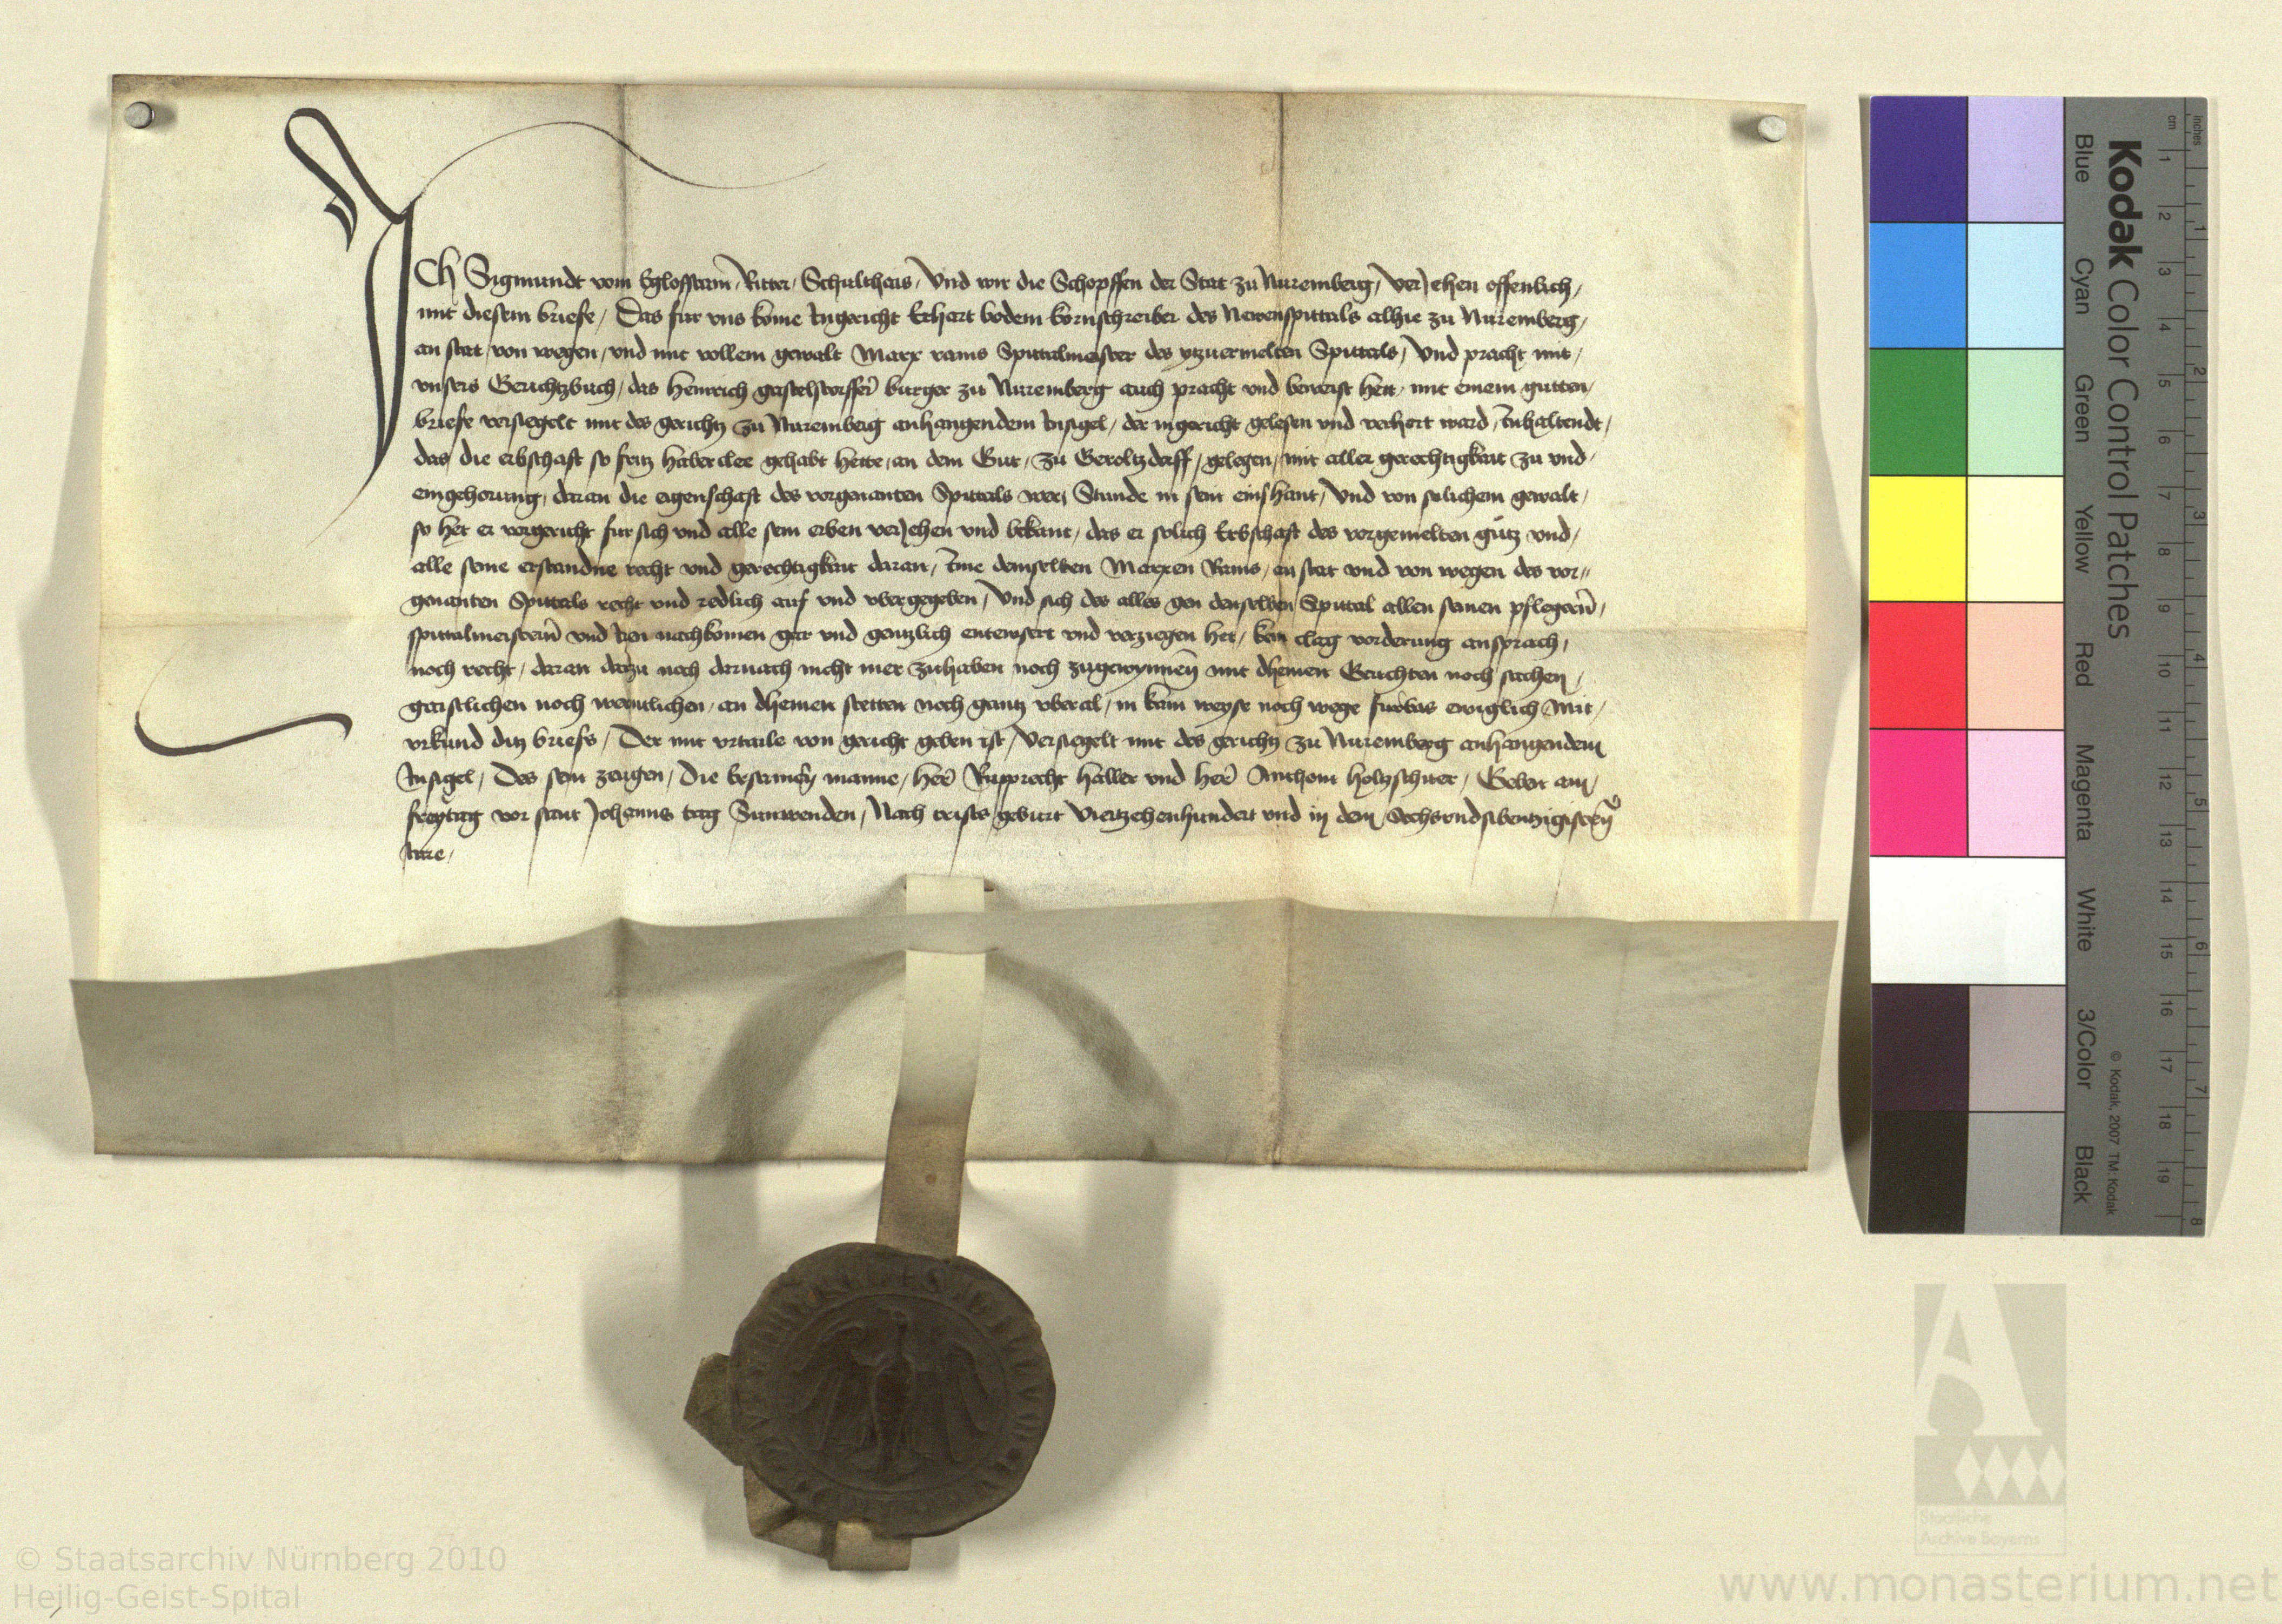 ICh Sigmundt vom Egloffstein, Ritter, Schultheis, Vnd wir die Schopffen der Stat zu Nuremberg, Veriehen offenlich,
mit diesem briefe, Das fur vns kome Ingericht Erhart bodem kornschreiber des Newenspittals alhie zu Nuremberg,
an stat, von wegen, vnd mit vollem gewalt Marx rams Spittalmeister des ytzuermelten Spittals, Vnd pracht mit,
vnsers Gerichtzbuch, das Heinrich gastelstorffer burger zu Nuremberg auch pracht vnd beweist hett, mit einem gutten,
briefe versiegelt mit des gerichtz zu Nuremberg anhangendem Insigel, der ingericht gelesen vnd verhort ward, Inhaltendt,
das die erbschaft so fritz haberclee gehabt hette, an dem Gut, zu Geroltzdorff, gelegen, mit aller gerechtigkait zu vnd,
eingehorung, daran die eigenschaft des vorgenanten Spittals wer, Stunde in sein einshant, Vnd von solichem gewalt,
so het er vorgericht fur sich vnd alle sein erben veriehen vnd bekant, das er solich Erbschaft des vorgemelten gutz vnd,
alle seine erstandne recht vnd gerechtigkait daran, Ime demselben Marxen Rams, an stat vnd von wegen des vor„
genanten Spittals recht vnd redlich auf vnd vbergegeben, Vnd sich des alles gen demselben Spittal allen seinen pflegern,
spittalmeistern vnd Iren nachkomen gar vnd gantzlich entewsert vnd verziegen het, kein clag vorderung ansprach,
noch recht, daran dartzu noch darnach nicht mer zuhaben noch zugewynnen mit dheinen Gerichten noch sachen,
geistlichen noch werntlichen, an dheinen stetten noch gantz vberal, in kain weyse noch wege furbas ewiglich Mit,
vrkund ditz briefs, Der mit vrtaile von gericht geben ist, Versiegelt mit des gerichtz zu Nuremberg anhangendem
Insigel, Des sein zeugen, Die bescheiden manne, her Rupprecht haller vnd her Anthoni holtzschuer, Geben am,
freytag vor sant Johanns tag Sunwenden, Nach crists geburt Viertzehenhundert vnd in dem, Sechsvndsibentzigisten
Iare,
Kodak Color Control Patches
© Kodak, 2007 TM: Kodak
Blue Cyan Green Yellow Red Magenta White 3/Color Black
inches 1 2 3 4 5 6 7 8
cm 1 2 3 4 5 6 7 8 9 10 11 12 13 14 15 16 17 18 19
Staatliche
Archive Bayerns
© Staatsarchiv Nürnberg 2010
Heilig-Geist-Spital
www.monasterium.net